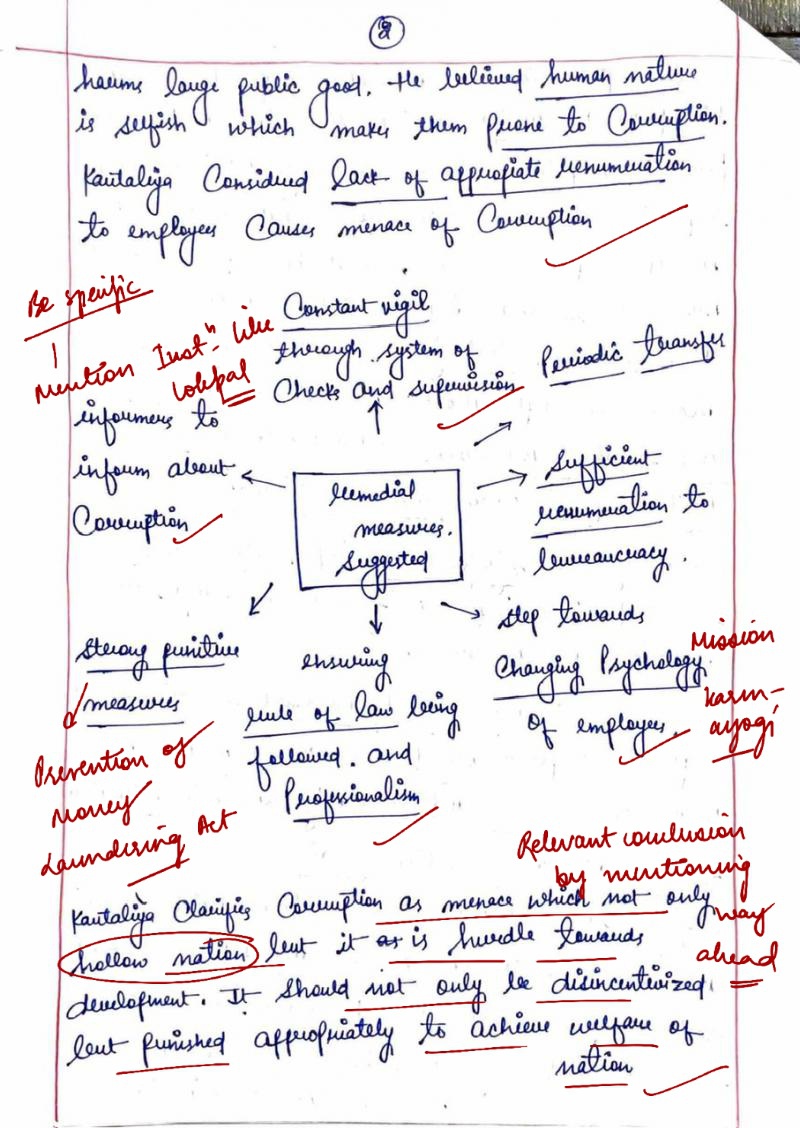 2
harms large public good. He believed human nature
is selfish which makes them prone to Corruption.
Kautaliya Considered lack of appropiate renumeration
to employees Causes menace of Corruption
Be specific
Mention Instⁿ. like
lokpal
Constant vigil
through system of
Checks and supervision
Periodic transfer
informers to
inform about
Corruption
Remedial
measures.
Suggested
Sufficient
renumeration to
bureaucracy.
Strong punitive
measures
Prevention of
Money
Laundering Act
ensuring
rule of law being
followed. and
Professionalism
step towards
Changing Psychology
of employees.
Mission
karm-
ayogi
Relevant conclusion
by mentioning
way
ahead
Kautaliya Clarifies Corruption as menace which not only
hollow nation but it as is hurdle towards
development. It should not only be disincentivized
but punished appropriately to achieve welfare of
nation